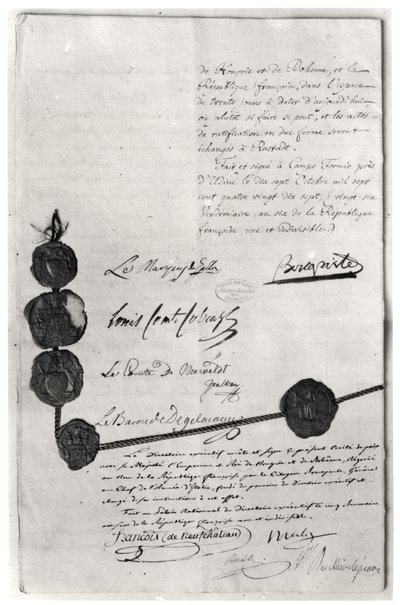 de Hongrie et de Boheme, et la
République françoise, dans l'espace
de trente jours à dater d'aujourd'hui
ou plutôt si faire se peut, et les actes
de ratification en due forme seront
échangés à Rastadt.
Fait et signé à Campo Formio près
d'Udine le dix sept Octobre mil sept
cent quatre vingt dix sept; vingt-six
Vendemiaire, an six de la République
françoise une et indivisible.
Le Marquis de Gallo
Bonaparte
Louis Comte Cobenzl
Le Comte De Merveldt
Le Baron de Degelmann
Le Directoire exécutif arrête et signe le présent traité de paix
avec sa Majesté l'Empereur et Roi de Hongrie et de Bohême, négocié
au Nom de la République française par le Citoyen Bonaparte, Général
en Chef de l'Armée d'Italie, fondé de pouvoirs du directoire exécutif et
chargé de ses instructions à cet effet.
Fait au Palais National du Directoire exécutif le cinq Brumaire
an six de la République française une et indivisible.
François (de neufchâteau)